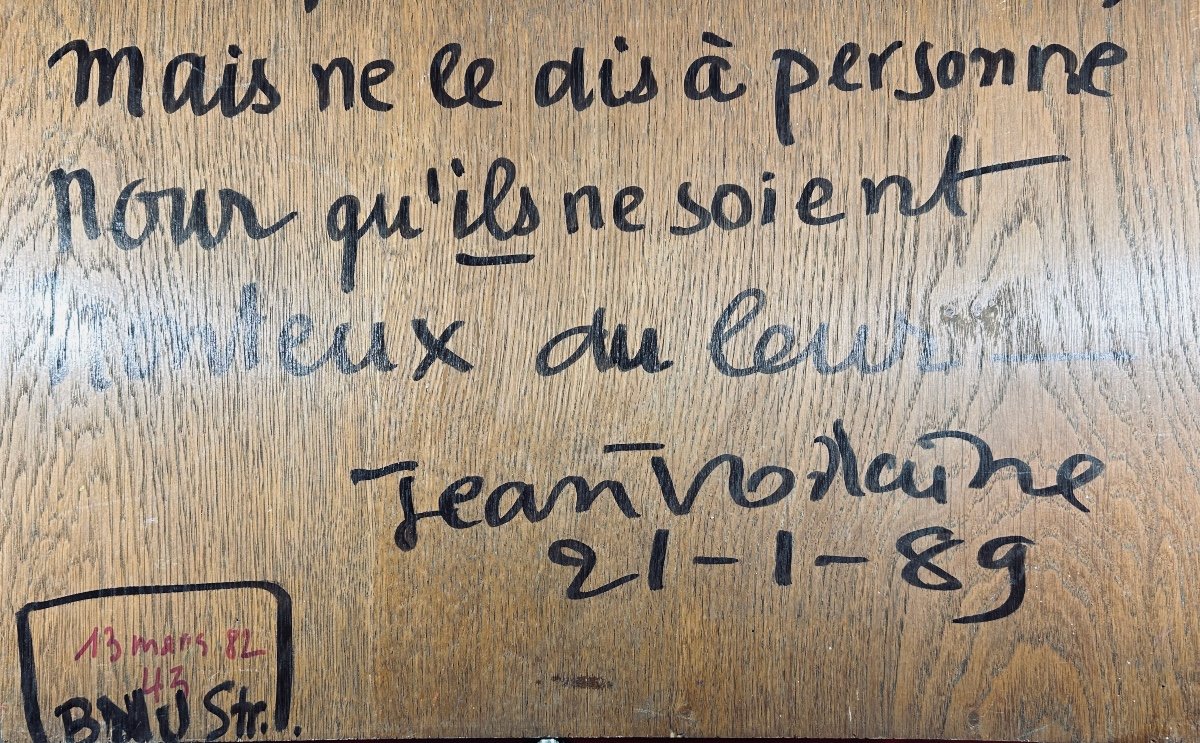 mais ne le dis à personne
pour qu'ils ne soient
honteux du leur
jean Vodaine
21-1-89
13 mars 82
43
BNU Str..